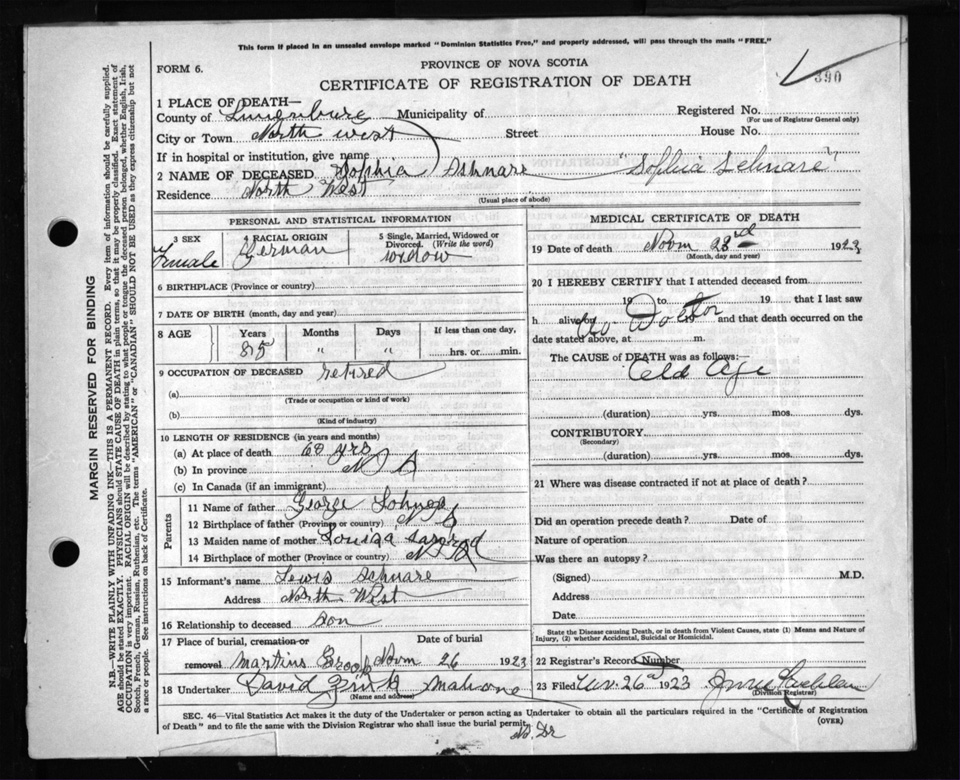 This form if placed in an unsealed envelope marked "Dominion Statistics Free," and properly addressed, will pass through the mails "FREE."
FORM 6.
PROVINCE OF NOVA SCOTIA
CERTIFICATE OF REGISTRATION OF DEATH
390
1 PLACE OF DEATH—
County of Lunenburg Municipality of Registered No.
(For use of Registrar General only)
City or Town North west Street House No.
If in hospital or institution, give name
2 NAME OF DECEASED Sophia Schnare "Sophia Schnare"
Residence North West
(Usual place of abode)
MARGIN RESERVED FOR BINDING
N.B.—WRITE PLAINLY WITH UNFADING INK—THIS IS A PERMANENT RECORD. Every item of information should be carefully supplied.
AGE should be stated EXACTLY. PHYSICIANS should STATE CAUSE OF DEATH in plain terms, so that it may be properly classified. Exact statement of
OCCUPATION is very important. RACIAL ORIGIN will be described by stating to what people or tongue the deceased person belonged, whether English, Irish,
Scotch, French, German, Russian, Ruthenian, etc. The terms "AMERICAN" or "CANADIAN" SHOULD NOT BE USED as they express citizenship but not
a race or people. See instructions on back of Certificate.
PERSONAL AND STATISTICAL INFORMATION
3 SEX
Female
4 RACIAL ORIGIN
German
5 Single, Married, Widowed or Divorced. (Write the word)
widow
6 BIRTHPLACE (Province or country)
7 DATE OF BIRTH (month, day and year)
8 AGE
Years Months Days If less than one day,
85 " " hrs. or min.
9 OCCUPATION OF DECEASED retired
(a)
(Trade or occupation or kind of work)
(b)
(Kind of industry)
10 LENGTH OF RESIDENCE (in years and months)
(a) At place of death 60 yrs
(b) In province N S
(c) In Canada (if an immigrant)
Parents
11 Name of father George
12 Birthplace of father (Province or country) N S
13 Maiden name of mother Louisa
14 Birthplace of mother (Province or country) N S
15 Informant's name Lewis Schnare
Address North West
16 Relationship to deceased Son
17 Place of burial, cremation or removal Date of burial
Martins Brook Novm 26 1923
18 Undertaker David Zinck Mahone
(Name and address)
MEDICAL CERTIFICATE OF DEATH
19 Date of death Novm 23rd 1923
(Month, day and year)
20 I HEREBY CERTIFY that I attended deceased from
19 to 19 that I last saw
h alive No Doctor 19 and that death occurred on the
date stated above, at m.
The CAUSE of DEATH was as follows:—
Old Age
(duration) yrs. mos. dys.
CONTRIBUTORY
(Secondary)
(duration) yrs. mos. dys.
21 Where was disease contracted if not at place of death?
Did an operation precede death? Date of
Nature of operation
Was there an autopsy?
(Signed) M.D.
Address
Date
State the Disease causing Death, or in death from Violent Causes, state (1) Means and Nature of
Injury, (2) whether Accidental, Suicidal or Homicidal.
22 Registrar's Record Number
23 Filed Nov. 26 1923
(Division Registrar)
SEC. 46—Vital Statistics Act makes it the duty of the Undertaker or person acting as Undertaker to obtain all the particulars required in the "Certificate of Registration
of Death" and to file the same with the Division Registrar who shall issue the burial permit.
(OVER)
No. Dr